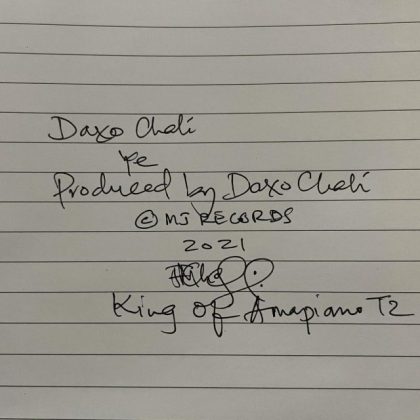 Daxo Chali
Ye
Produced by Daxo Chali
© MJ RECORDS
2021
King Of Amapiano TZ